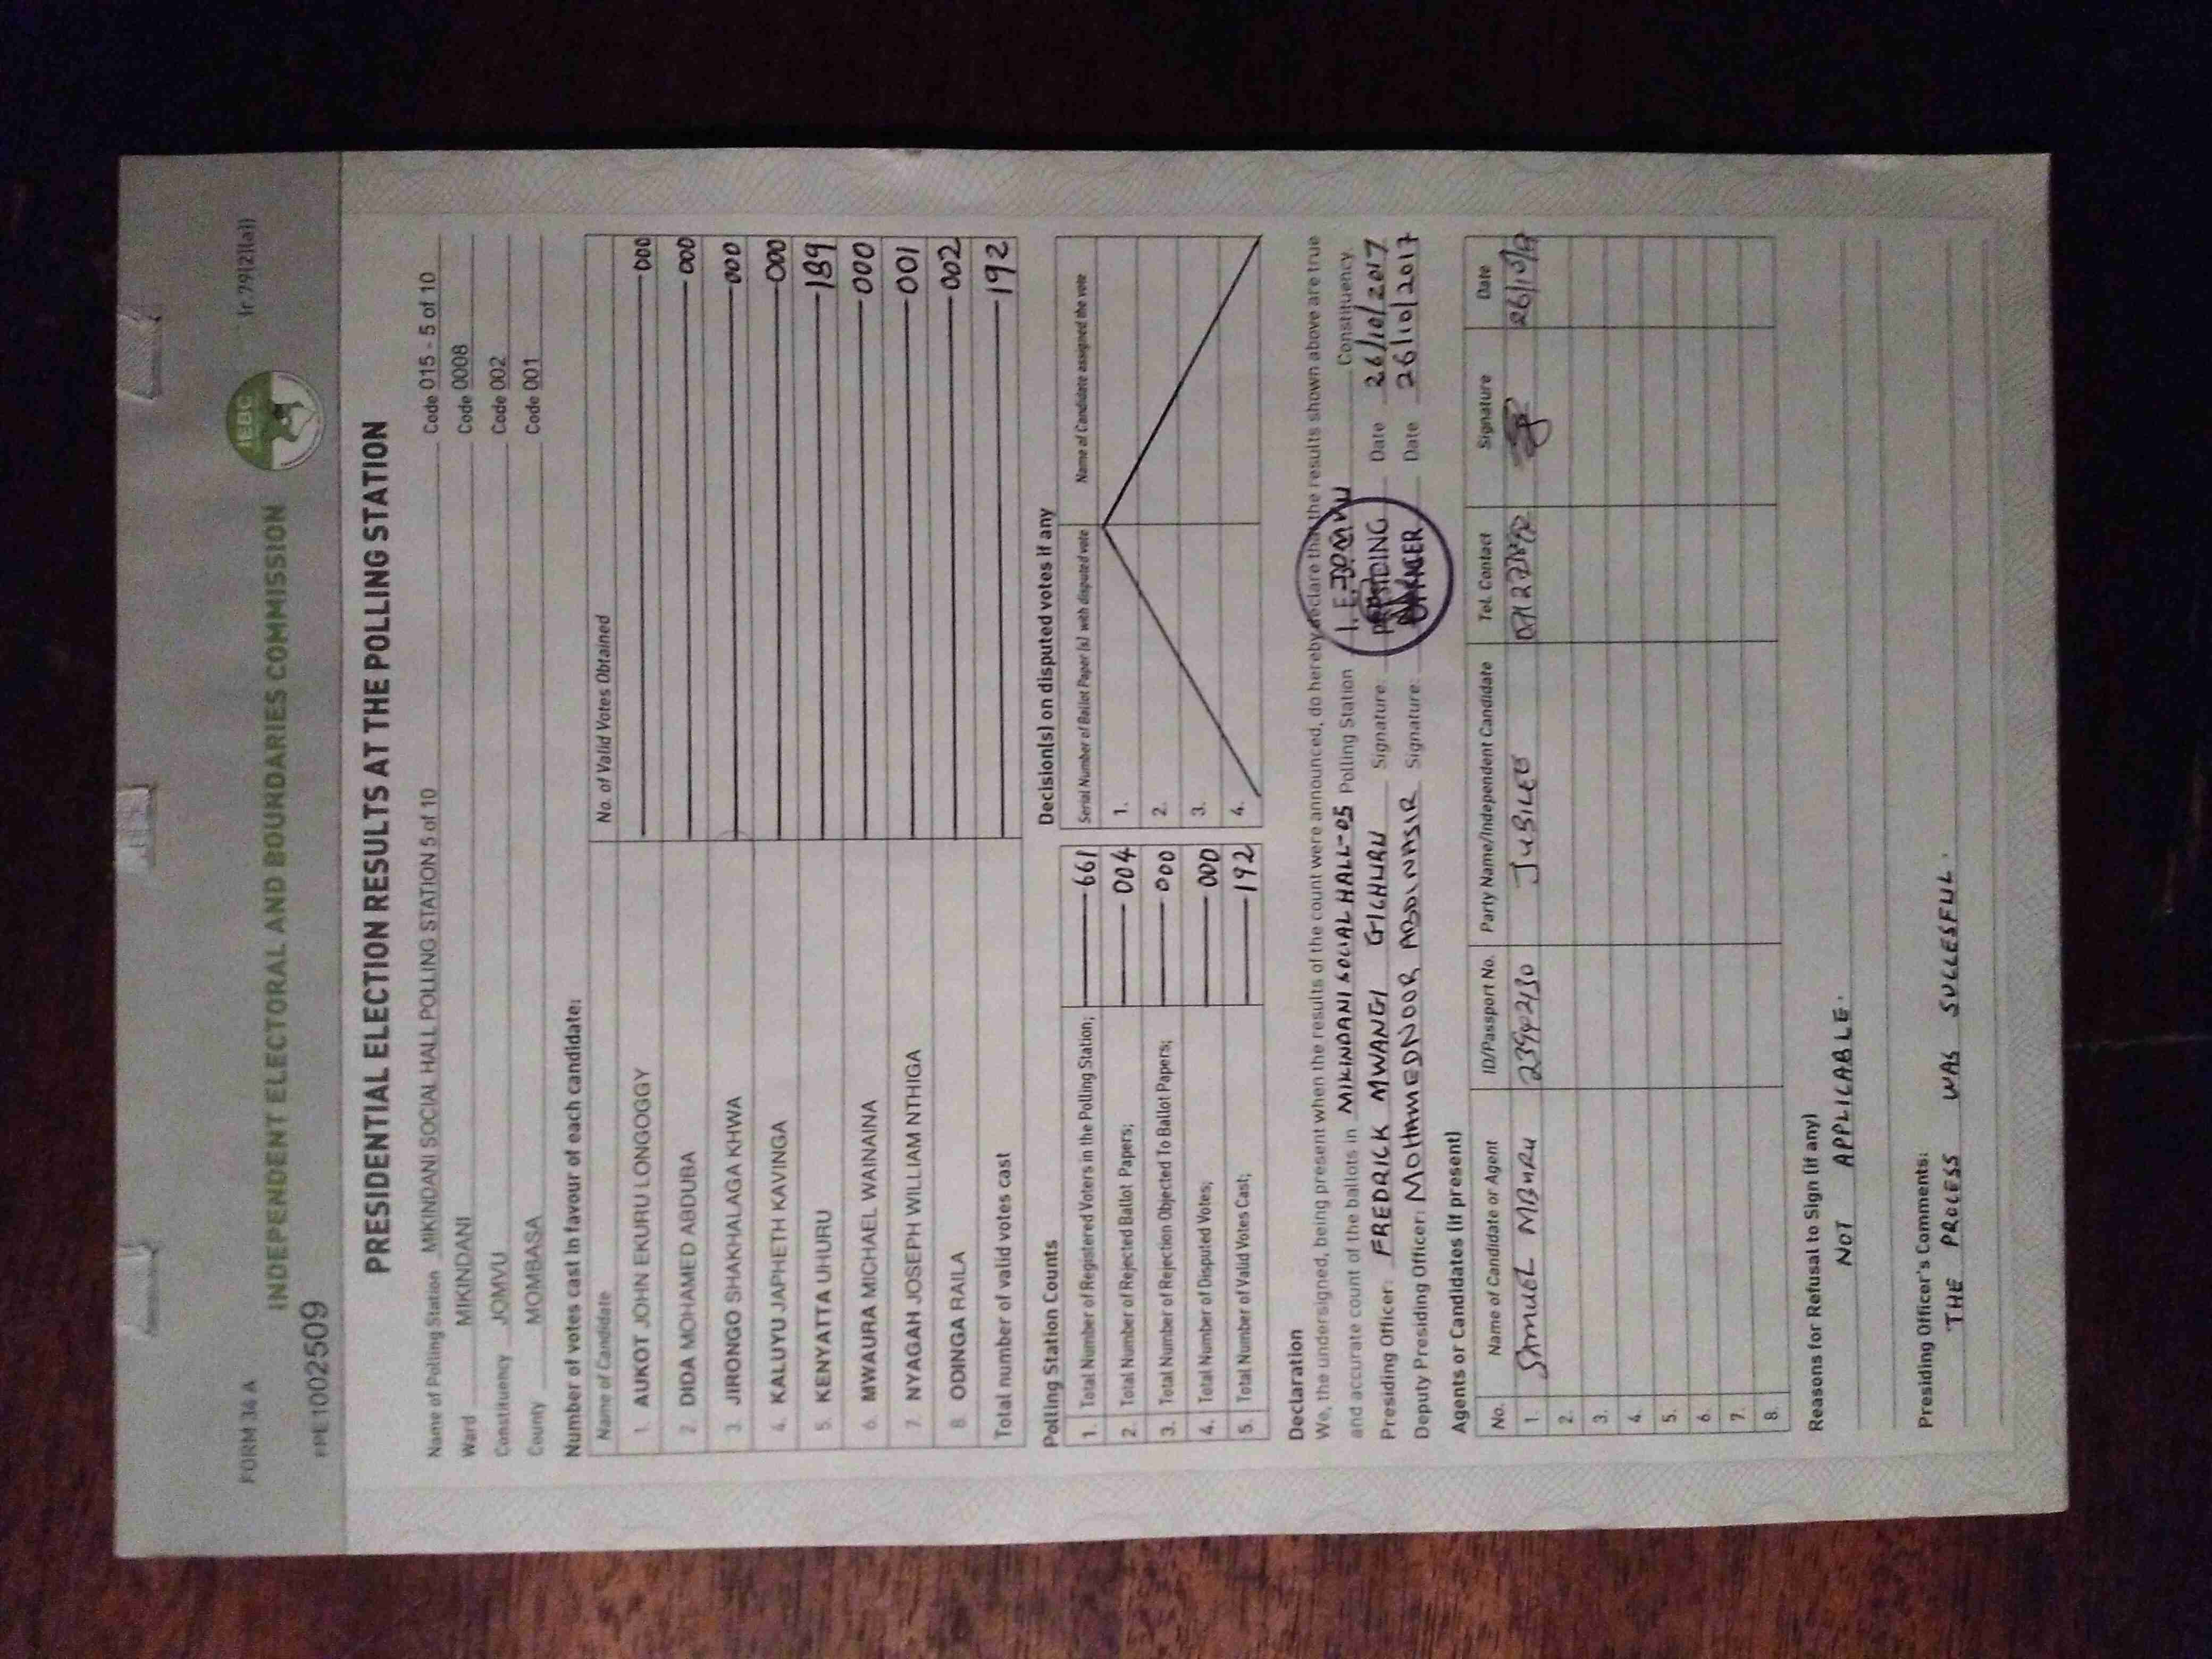 FORM 34 A
(r.79(2)(a))
IEBC
INDEPENDENT ELECTORAL AND BOUNDARIES COMMISSION
PRE1002509
PRESIDENTIAL ELECTION RESULTS AT THE POLLING STATION
Name of Polling Station MIKINDANI SOCIAL HALL POLLING STATION 5 of 10 Code 015 - 5 of 10
Ward MIKINDANI Code 0008
Constituency JOMVU Code 002
County MOMBASA Code 001
Number of votes cast in favour of each candidate:
Name of Candidate No. of Valid Votes Obtained
1. AUKOT JOHN EKURU LONGOGGY 000
2. DIDA MOHAMED ABDUBA 000
3. JIRONGO SHAKHALAGA KHWA 000
4. KALUYU JAPHETH KAVINGA 000
5. KENYATTA UHURU 189
6. MWAURA MICHAEL WAINAINA 000
7. NYAGAH JOSEPH WILLIAM NTHIGA 001
8. ODINGA RAILA 002
Total number of valid votes cast 192
Polling Station Counts
1. Total Number of Registered Voters in the Polling Station; 661
2. Total Number of Rejected Ballot Papers; 004
3. Total Number of Rejection Objected To Ballot Papers; 000
4. Total Number of Disputed Votes; 000
5. Total Number of Valid Votes Cast; 192
Decision(s) on disputed votes if any
Serial Number of Ballot Paper (s) with disputed vote Name of Candidate assigned the vote
1.
2.
3.
4.
Declaration
We, the undersigned, being present when the results of the count were announced, do hereby declare that the results shown above are true
and accurate count of the ballots in MIKINDANI SOCIAL HALL-05 Polling Station JOMVU Constituency.
Presiding Officer: FREDRICK MWANGI GICHURU Signature: Date 26/10/2017
Deputy Presiding Officer: MOHAMEDNOOR ABDINASIR Signature: Date 26/10/2017
PRESIDING
OFFICER
Agents or Candidates (if present)
No. Name of Candidate or Agent ID/Passport No. Party Name/Independent Candidate Tel. Contact Signature Date
1. SAMUEL MBURU JUBILEE
2.
3.
4.
5.
6.
7.
8.
Reasons for Refusal to Sign (if any)
NOT APPLICABLE.
Presiding Officer's Comments:
THE PROCESS WAS SUCCESFUL.